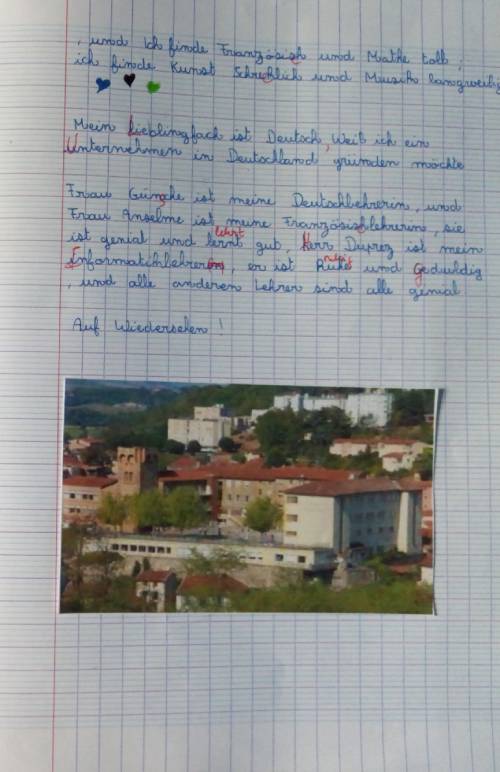 , und Ich finde Französisch und Mathe toll,
ich finde Kunst Schrecklich und Musik langweilig
Mein Lieblingfach ist Deutsch, Weil ich ein
Unternehmen in Deutschland gründen möchte
Frau Günche ist meine Deutschlehrerin, und
Frau Anselme ist meine Französischlehrerin, sie
lehrt
ist genial und lernt gut, Herr Duprez ist mein
Informatiklehrer(in), er ist und Geduldig
, und alle anderen Lehrer sind alle genial
Auf Wiedersehen !